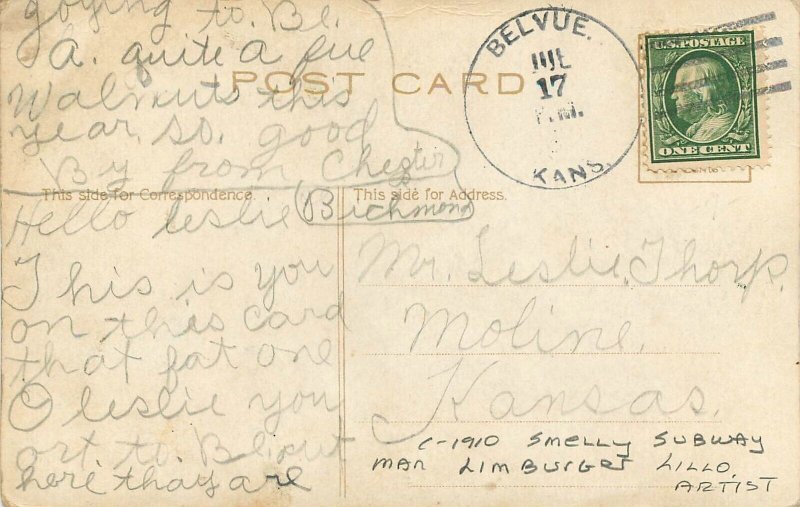 goying to. Be.
A. quite a fue
Walnuts this
year. so. good
By from Chester
Richmond
POST CARD
BELVUE.
JUL
17
P.M.
KANS.
U.S. POSTAGE
ONE CENT
This side for Correspondence.
This side for Address.
Hello leslie
This is you
on this card
that fat one
O leslie you
ort to. Be. out
here thay are
Mr. Leslie. Thorp.
Moline.
Kansas.
C-1910 SMELLY SUBWAY
MAN LIMBURGER LILLO,
ARTIST